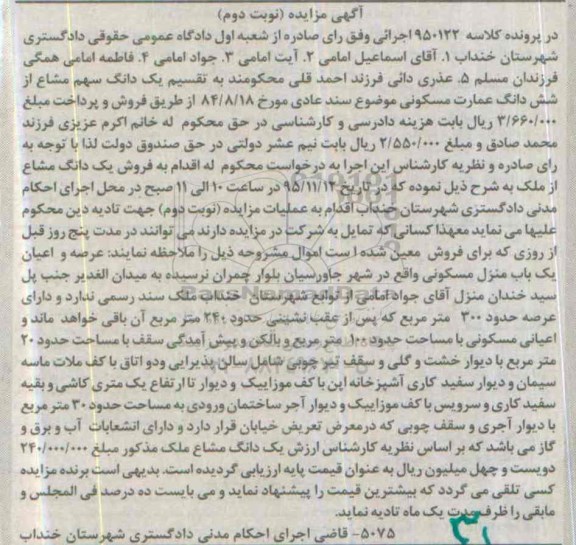 آگهی مزایده (نوبت دوم)
در پرونده کلاسه ۹۵۰۱۲۲ اجرائی وفق رای صادره از شعبه اول دادگاه عمومی حقوقی دادگستری
شهرستان خنداب ۱. آقای اسماعیل امامی ۲. آیت امامی ۳. جواد امامی ۴. فاطمه امامی همگی
فرزندان مسلم ۵. عذری دائی فرزند احمد قلی محکومند به تقسیم یک دانگ سهم مشاع از
شش دانگ عمارت مسکونی موضوع سند عادی مورخ ۸۴/۸/۱۸ از طریق فروش و پرداخت مبلغ
۳/۶۶۰/۰۰۰ ریال بابت هزینه دادرسی و کارشناسی در حق محکوم له خانم اکرم عزیزی فرزند
محمد صادق و مبلغ ۲/۵۵۰/۰۰۰ ریال بابت نیم عشر دولتی در حق صندوق دولت لذا با توجه به
رای صادره و نظریه کارشناس این اجرا به درخواست محکوم له اقدام به فروش یک دانگ مشاع
از ملک به شرح ذیل نموده که در تاریخ ۹۵/۱۱/۱۲ در ساعت ۱۰ الی ۱۱ صبح در محل اجرای احکام
مدنی دادگستری شهرستان خنداب اقدام به عملیات مزایده (نوبت دوم) جهت تادیه دین محکوم
علیها می نماید معهذا کسانی که تمایل به شرکت در مزایده دارند می توانند در مدت پنج روز قبل
از روزی که برای فروش معین شده است اموال مشروحه ذیل را ملاحظه نمایند: عرصه و اعیان
یک باب منزل مسکونی واقع در شهر جاورسیان بلوار چمران نرسیده به میدان الغدیر جنب پل
سید خندان منزل آقای جواد امامی از توابع شهرستان خنداب ملک سند رسمی ندارد و دارای
عرصه حدود ۳۰۰ متر مربع که پس از عقب نشینی حدود ۲۴۰ متر مربع آن باقی خواهد ماند و
اعیانی مسکونی با مساحت حدود ۱۰۰ متر مربع و بالکن و پیش آمدگی سقف با مساحت حدود ۲۰
متر مربع با دیوار خشت و گلی و سقف تیر چوبی شامل سالن پذیرایی ودو اتاق با کف ملات ماسه
سیمان و دیوار سفید کاری آشپزخانه این با کف موزاییک و دیوار تا ارتفاع یک متری کاشی و بقیه
سفید کاری و سرویس با کف موزاییک و دیوار آجر ساختمان ورودی به مساحت حدود ۳۰ متر مربع
با دیوار آجری و سقف چوبی که درمعرض تعریض خیابان قرار دارد و دارای انشعابات آب و برق و
گاز می باشد که بر اساس نظریه کارشناس ارزش یک دانگ مشاع ملک مذکور مبلغ ۲۴۰/۰۰۰/۰۰۰
دویست و چهل میلیون ریال به عنوان قیمت پایه ارزیابی گردیده است. بدیهی است برنده مزایده
کسی تلقی می گردد که بیشترین قیمت را پیشنهاد نماید و می بایست ده درصد فی المجلس و
مابقی را ظرف مدت یک ماه تادیه نماید.
۵۰۷۵- قاضی اجرای احکام مدنی دادگستری شهرستان خنداب